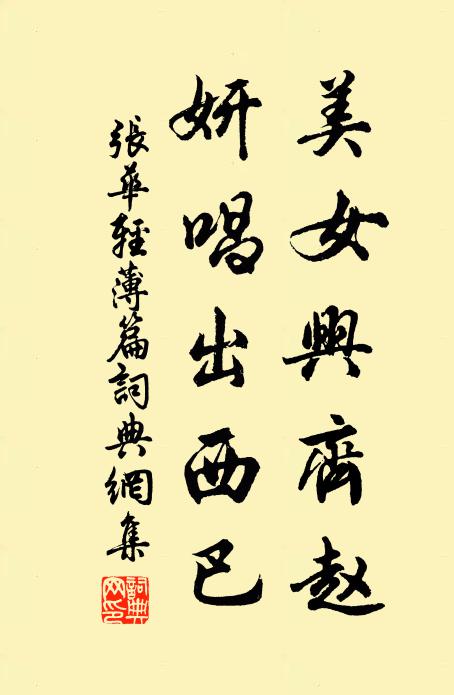 美女興齊赵
妍唱出西巴
張華輕薄篇詞典網集
詞典網印